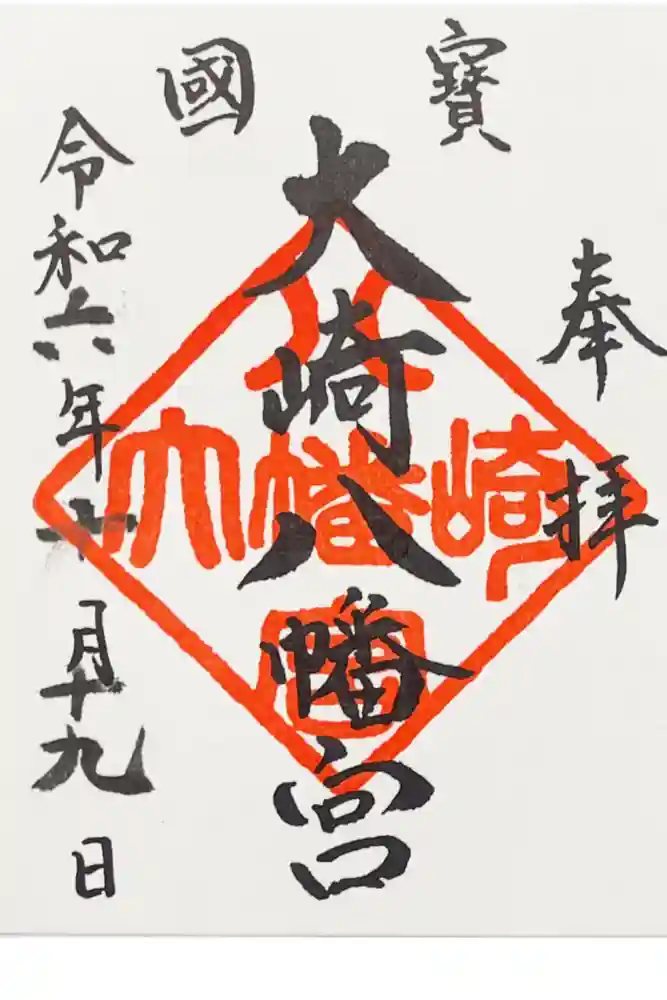 寶國
奉拝
大崎八幡宮
令和六年十月十九日
大崎八幡宮